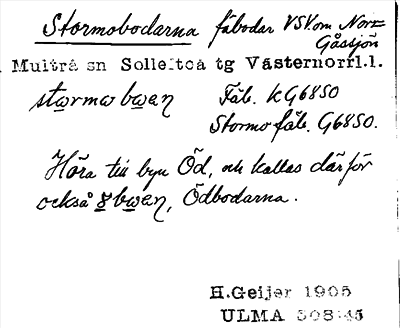 Stormobodarna fäbodar VSV om Norr-
Gåssjön
Multrå sn Sollefteå tg Västernorrl.l.
Fäb. KG6850
Stormo fäb. G6850.
Höra till byn Öd, och kallas därför
också Ödbodarna.
H.Geijer 1905
ULMA 308:45